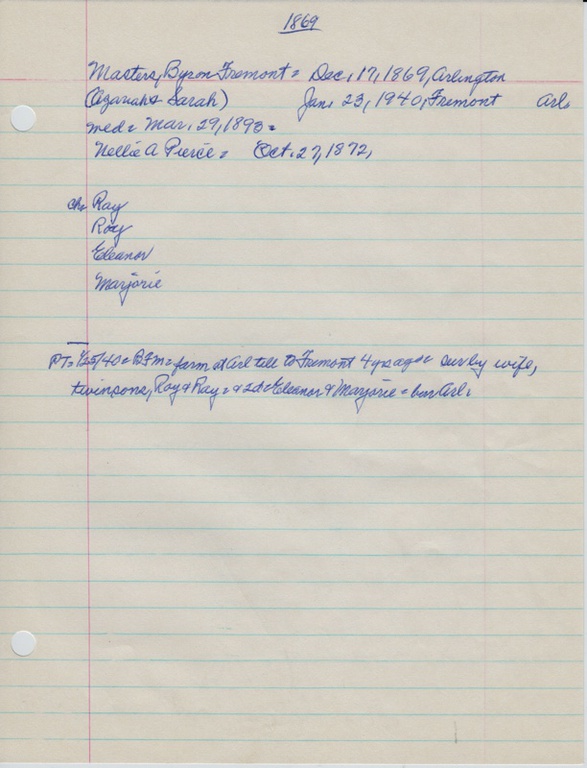 1869
Masters, Byron Fremont = Dec. 17, 1869, Arlington
(Azariah & Sarah) Jan. 23, 1940, Fremont Arl.
med = Mar. 29, 1893 =
Nellie A Pierce = Oct. 27, 1872,
ch= Ray
Roy
Eleanor
Marjorie
PT= 1/25/40 = BFM = farm at Arl till to Fremont 4 yrs ago = sur by wife,
twin sons, Roy & Ray = & 2d = Eleanor & Marjorie = bur Arl.